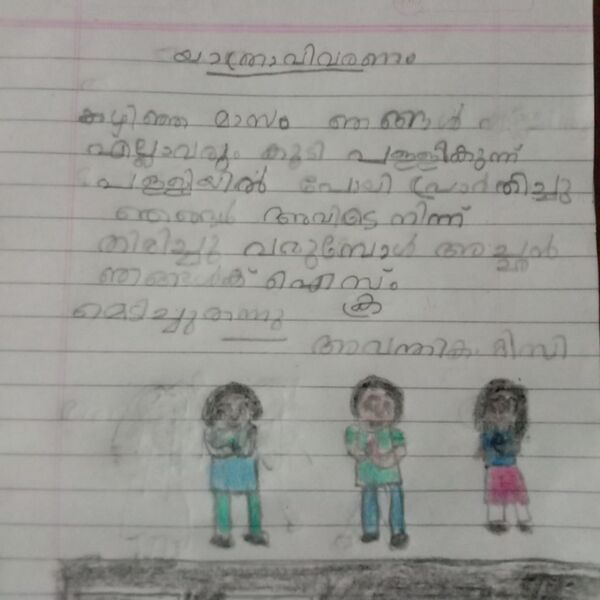 യാത്രാവിവരണം
കഴിഞ്ഞ മാസം ഞങ്ങൾ
എല്ലാവരും കൂടി പള്ളികുന്ന്
പള്ളിയിൽ പോയി പ്രാർതിച്ചു
ഞങ്ങൾ അവിടെ നിന്ന്
തിരിച്ചു വരുമ്പോൾ അച്ഛൻ
ഞങ്ങൾക് ഐസ്ക്രം
മെടിച്ചുതന്നു
അവന്തിക. മിസി